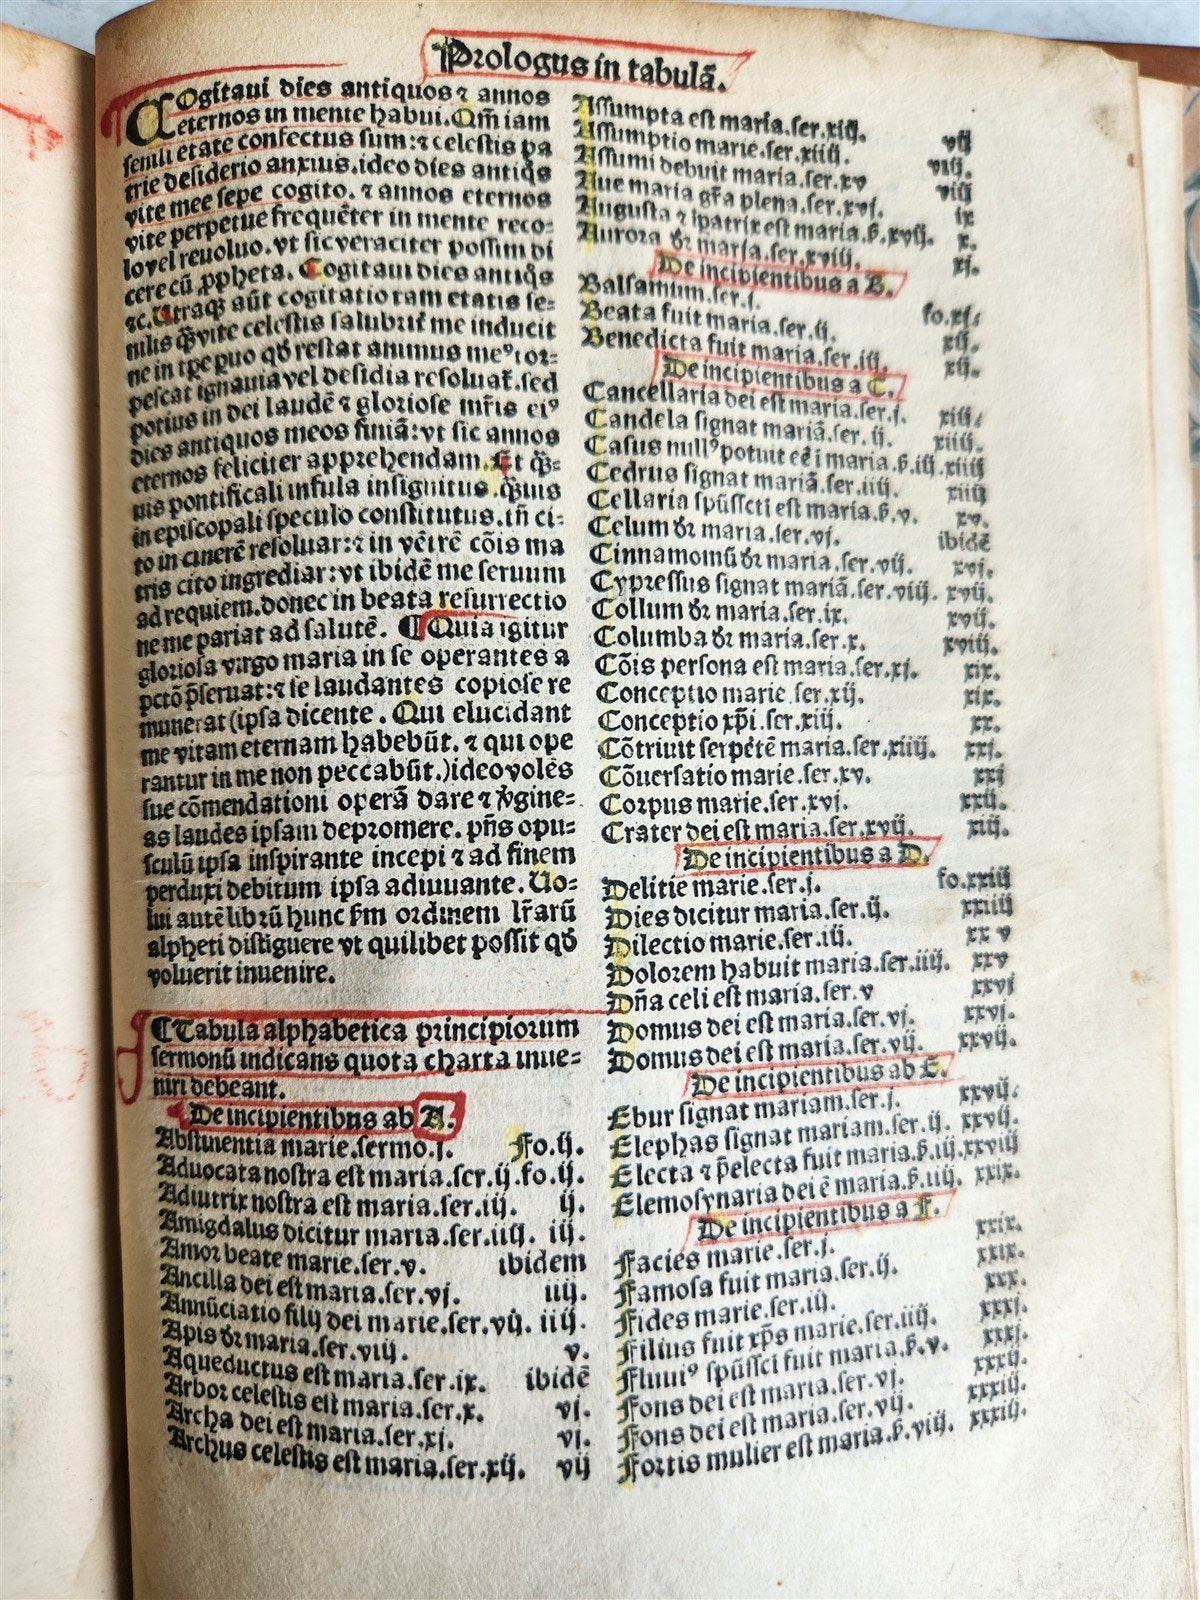 Prologus in tabulā.
COgitaui dies antiquos ⁊ annos
eternos in mente habui. Qm̄ iam
senili etate confectus sum: ⁊ celestis pa
trie desiderio anxius. ideo dies antiq̄s
vite mee sepe cogito. ⁊ annos eternos
vite perpetue frequēter in mente reco-
lo vel reuoluo. vt sic veraciter possim di
cere cū ꝓpheta. Cogitaui dies antiq̄s
⁊c. Utraqꝫ aūt cogitatio tam etatis se-
nilis q̄̄ vite celestis salubriť me inducit
ne in tꝑe quo qđ restat animus meꝰ tor-
pescat ignauia vel desidia resoluať. sed
potius in dei laudē ⁊ gloriose mr̄is eiꝰ
dies antiquos meos finiā: vt sic annos
eternos feliciter apprehendam. Et q̄̄-
uis pontificali infula insignitus. q̄̄uis
in episcopali speculo constitutus. iñ ci-
to in cinerē resoluar: ⁊ in vētrē cōis ma
tris cito ingrediar: vt ibidē me seruum
ad requiem. donec in beata resurrectio
ne me pariat ad salutē. ¶ Quia igitur
gloriosa virgo maria in se operantes a
pctō p̄seruat: ⁊ se laudantes copiose re
munerat (ipsa dicente. Qui elucidant
me vitam eternam habebūt. ⁊ qui ope
rantur in me non peccabūt.) ideo volēs
sue cōmendationi operā dare ⁊ v̓gine-
as laudes ipsam depromere. pn̄s opu-
sculū ipsa inspirante incepi ⁊ ad finem
perduxi debitum ipsa adiuuante. Uo-
lui autē librū hunc ẜm ordinem lr̄arū
alpheti distiguere vt quilibet possit qđ
voluerit inuenire.
¶ Tabula alphabetica principiorum
sermonū indicans quota charta inue-
niri debeant.
De incipientibus ab A.
Abstinentia marie.sermo.j. Fo.ij.
Aduocata nostra est maria.ser.ij. fo.ij.
Adiutrix nostra est maria.ser.iij. ij.
Amigdalus dicitur maria.ser.iiij. iij.
Amor beate marie.ser.v. ibidem
Ancilla dei est maria.ser.vj. iiij.
Annūciatio filij dei marie.ser.vij. iiij.
Apis dr̄ maria.ser.viij. v.
Aqueductus est maria.ser.ix. ibidē
Arbor celestis est maria.ser.x. vj.
Archa dei est maria.ser.xj. vj.
Archus celestis est maria.ser.xij. vij
Assumpta est maria.ser.xiij. vij
Assumptio marie.ser.xiiij. viij.
Assumi debuit maria.ser.xv viij
Aue maria gr̄a plena.ser.xvj. ix
Augusta ⁊ ipatrix est maria.ẜ.xvij. x.
Aurora dr̄ maria.ser.xviij. xj.
De incipientibus a B.
Balsamum.ser.j. fo.xj.
Beata fuit maria.ser.ij. xij.
Benedicta fuit maria.ser.iij. xij.
De incipientibus a C.
Cancellaria dei est maria.ser.j. xiij.
Candela signat mariā.ser.ij. xiiij.
Casus nullꝰ potuit eē ī maria.ẜ.iij. xiiij
Cedrus signat mariā.ser.iiij. xiiij
Cellaria spūsscti est maria.ẜ.v. xv.
Celum dr̄ maria.ser.vj. ibidē
Cinnamomū dr̄ maria.ser.vij. xvj.
Cypressus signat mariā.ser.viij. xvij.
Collum dr̄ maria.ser.ix. xvij.
Columba dr̄ maria.ser.x. xviij.
Cōis persona est maria.ser.xj. xix.
Conceptio marie ser.xij. xix.
Conceptio xp̄i.ser.xiij. xx.
Cōtriuit serpētē maria.ser.xiiij. xxj.
Cōuersatio marie.ser.xv. xxj
Corpus marie.ser.xvj. xxij.
Crater dei est maria.ser.xvij. xiij.
De incipientibus a D.
Delitie marie.ser.j. fo.xxiij
Dies dicitur maria.ser.ij. xxiiij
Dilectio marie.ser.iij. xx v
Dolorem habuit maria.ser.iiij. xxv
Dn̄a celi est maria.ser.v xxvj
Domus dei est maria.ser.vj. xxvj.
Domus dei est maria.ser.vij. xxvij.
De incipientibus ab E.
Ebur signat mariam.ser.j. xxvij.
Elephas signat mariam.ser.ij. xxvij.
Electa ⁊ p̄electa fuit maria.ẜ.iij. xxviij
Elemosynaria dei ē maria.ẜ.iiij. xxix.
De incipientibus a F.
Facies marie.ser.j. xxix.
Famosa fuit maria.ser.ij. xxix.
Fides marie.ser.iij. xxx.
Filius fuit xp̄s marie.ser.iiij. xxxj.
Fluuiꝰ spūssci fuit maria.ẜ.v. xxxj.
Fons dei est maria.ser.vj. xxxij.
Fons dei est maria.ser.vij. xxxiij.
Fortis mulier est maria.ẜ.viij. xxxiij.